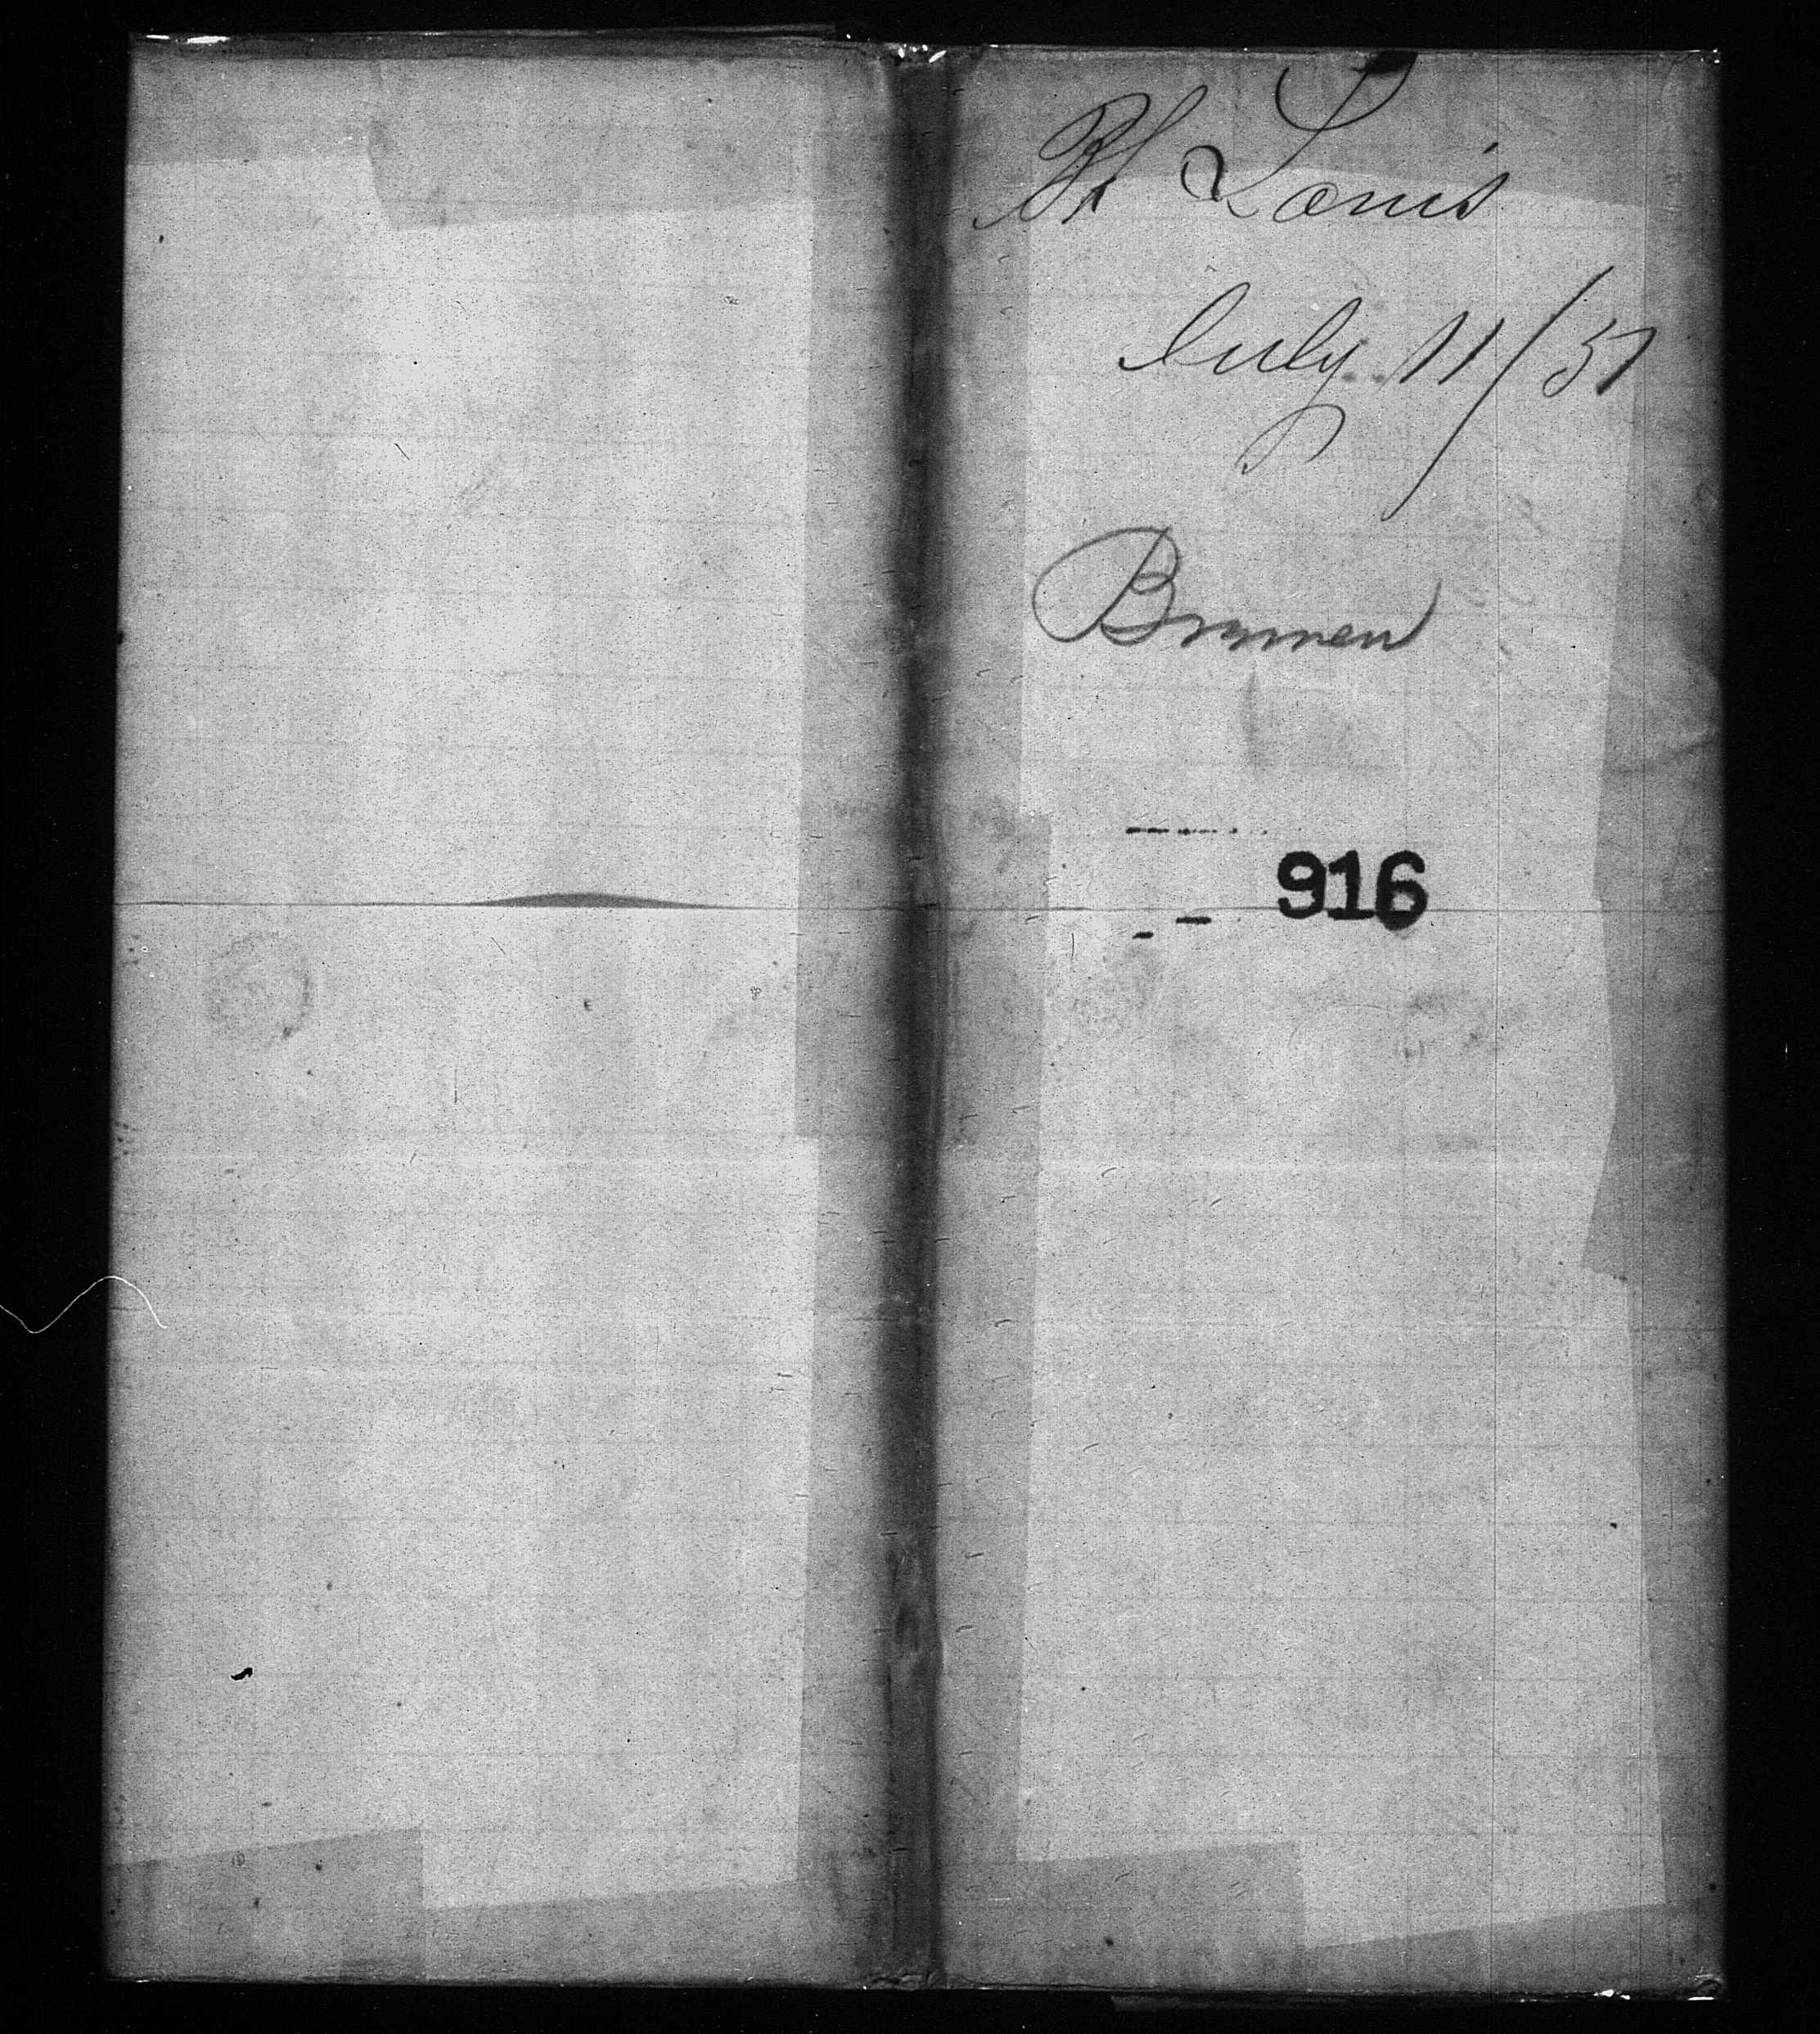 St Louis
July 11/51
916